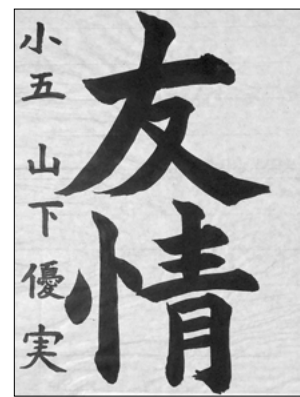 友情
小五 山下優実